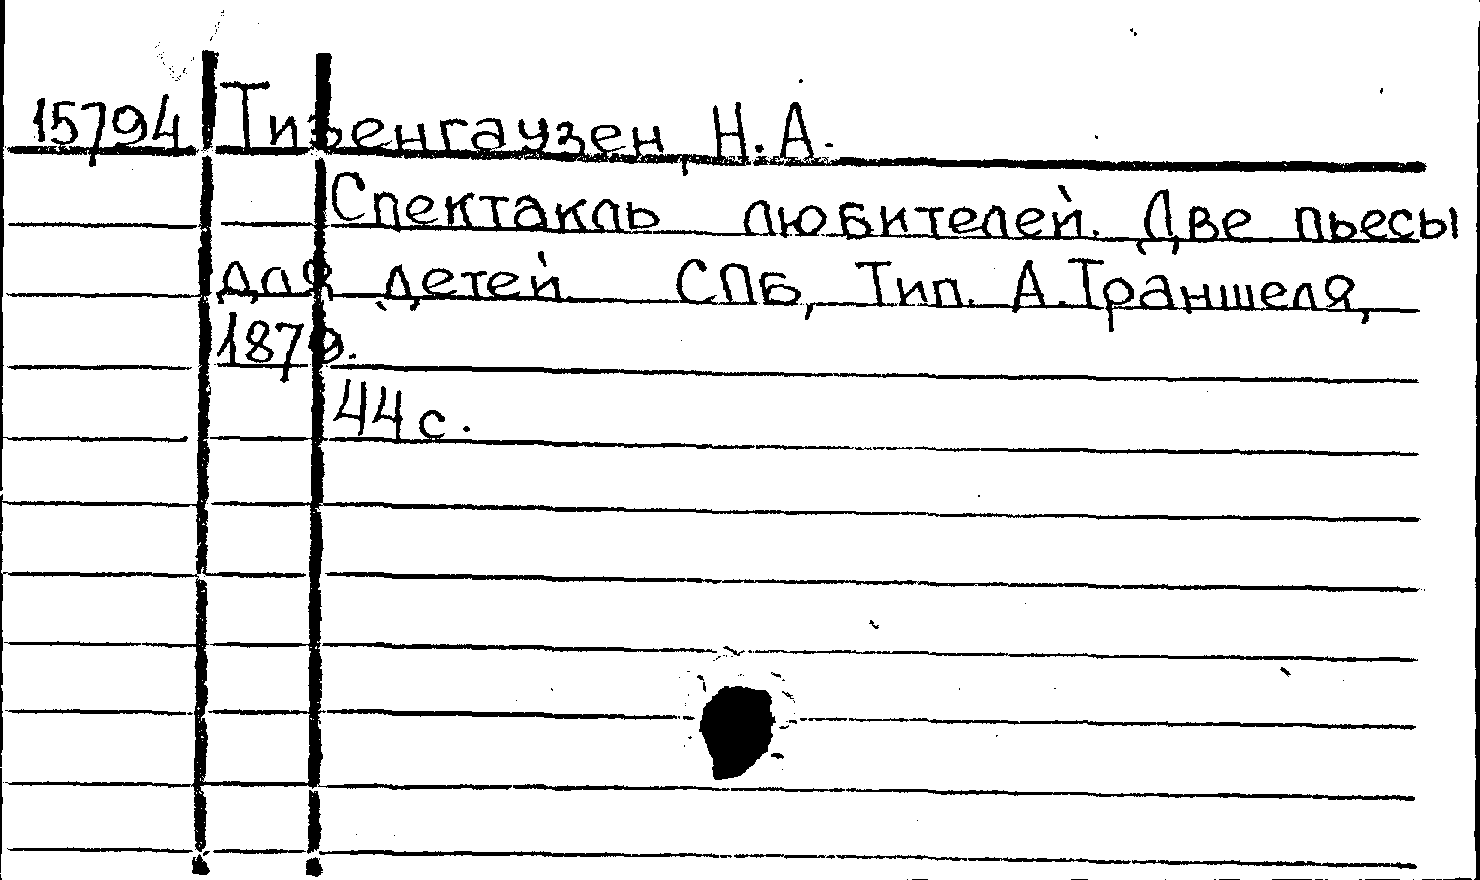 15794 Тизенгаузен, Н.А.
Спектакль любителей. Две пьесы
для детей. СПБ, Тип. А.Траншеля,
44 с.